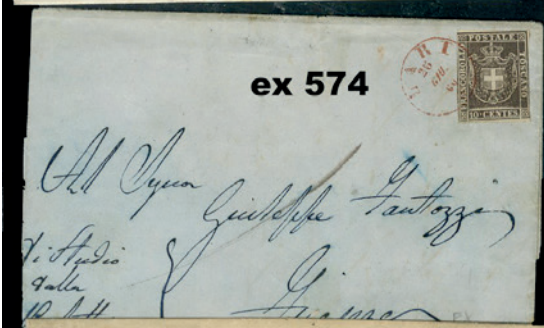 ex 574
FRANCOBOLLO
POSTALE
TOSCANO
10 CENTES.
26
GIU.
Al Signor
Giuseppe Fantozzi
Di Studio
dalla